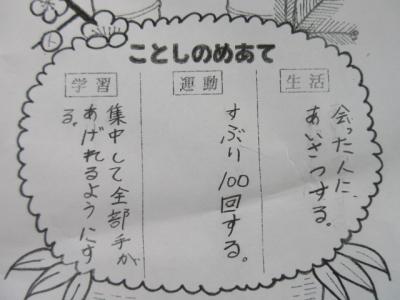 ことしのめあて
生活
会った人に
あいさつする。
運動
すぶり100回する。
学習
集中して全部手が
あげれるようにす
る。